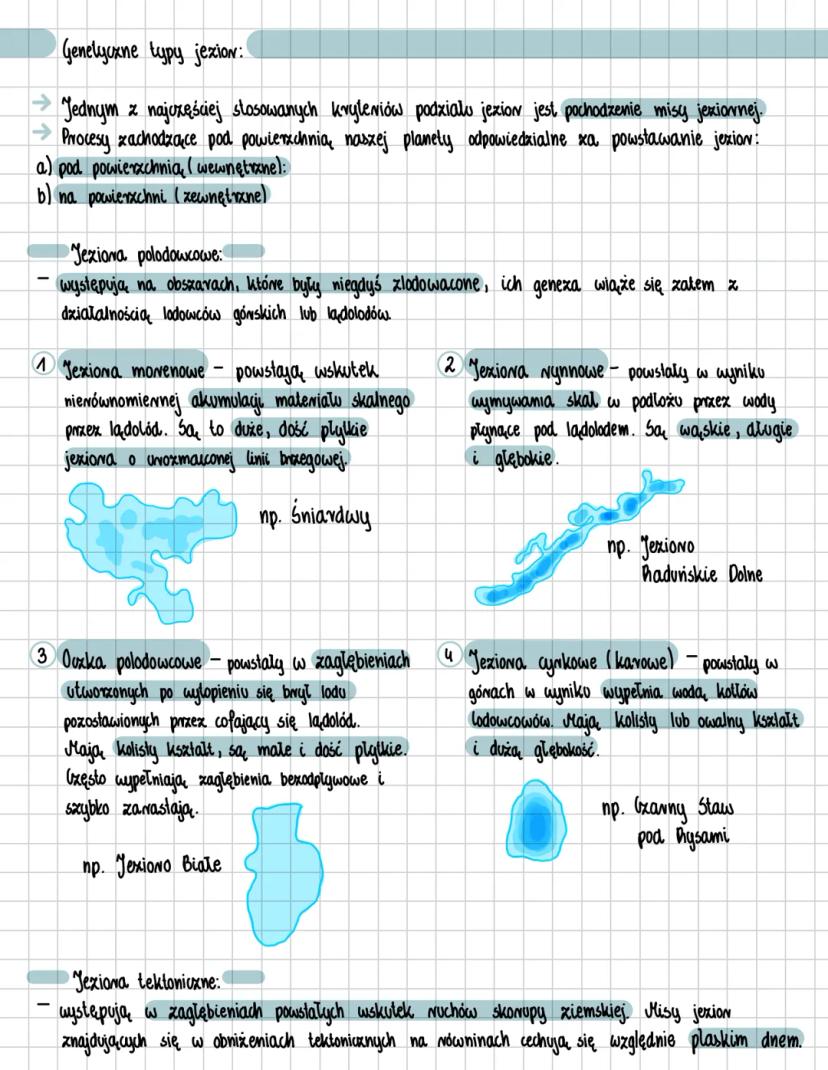 Genetyczne typy jezior:
→ Jednym z najczęściej stosowanych kryteriów podziału jezior jest pochodzenie misy jeziornej.
→ Procesy zachodzące pod powierzchnią naszej planety odpowiedzialne za powstawanie jezior:
a) pod powierzchnią (wewnętrzne):
b) na powierzchni (zewnętrzne)
Jeziora polodowcowe:
- występują na obszarach, które były niegdyś zlodowacone, ich geneza wiąże się zatem z
działalnością lodowców górskich lub lądolodów.
1 Jeziora morenowe - powstają wskutek
nierównomiernej akumulacji materiału skalnego
przez lądolód. Są to duże, dość płytkie
jeziora o urozmaiconej linii brzegowej.
np. Śniardwy
2 Jeziora rynnowe - powstały w wyniku
wymywania skał w podłożu przez wody
płynące pod lądolodem. Są wąskie, długie
i głębokie.
np. Jezioro
Raduńskie Dolne
3 Oczka polodowcowe - powstały w zagłębieniach
utworzonych po wytopieniu się brył lodu
pozostawionych przez cofający się lądolód.
Mają kolisty kształt, są małe i dość płytkie.
Często wypełniają zagłębienia bezodpływowe i
szybko zarastają.
np. Jezioro Białe
4 Jeziora cyrkowe (karowe) - powstały w
górach w wyniku wypełnia wodą kotłów
lodowcowów. Mają kolisty lub owalny kształt
i dużą głębokość.
np. Czarny Staw
pod Rysami
Jeziora tektoniczne:
- występują w zagłębieniach powstałych wskutek ruchów skorupy ziemskiej. Misy jezior
znajdujących się w obniżeniach tektonicznych na równinach cechują się względnie płaskim dnem.